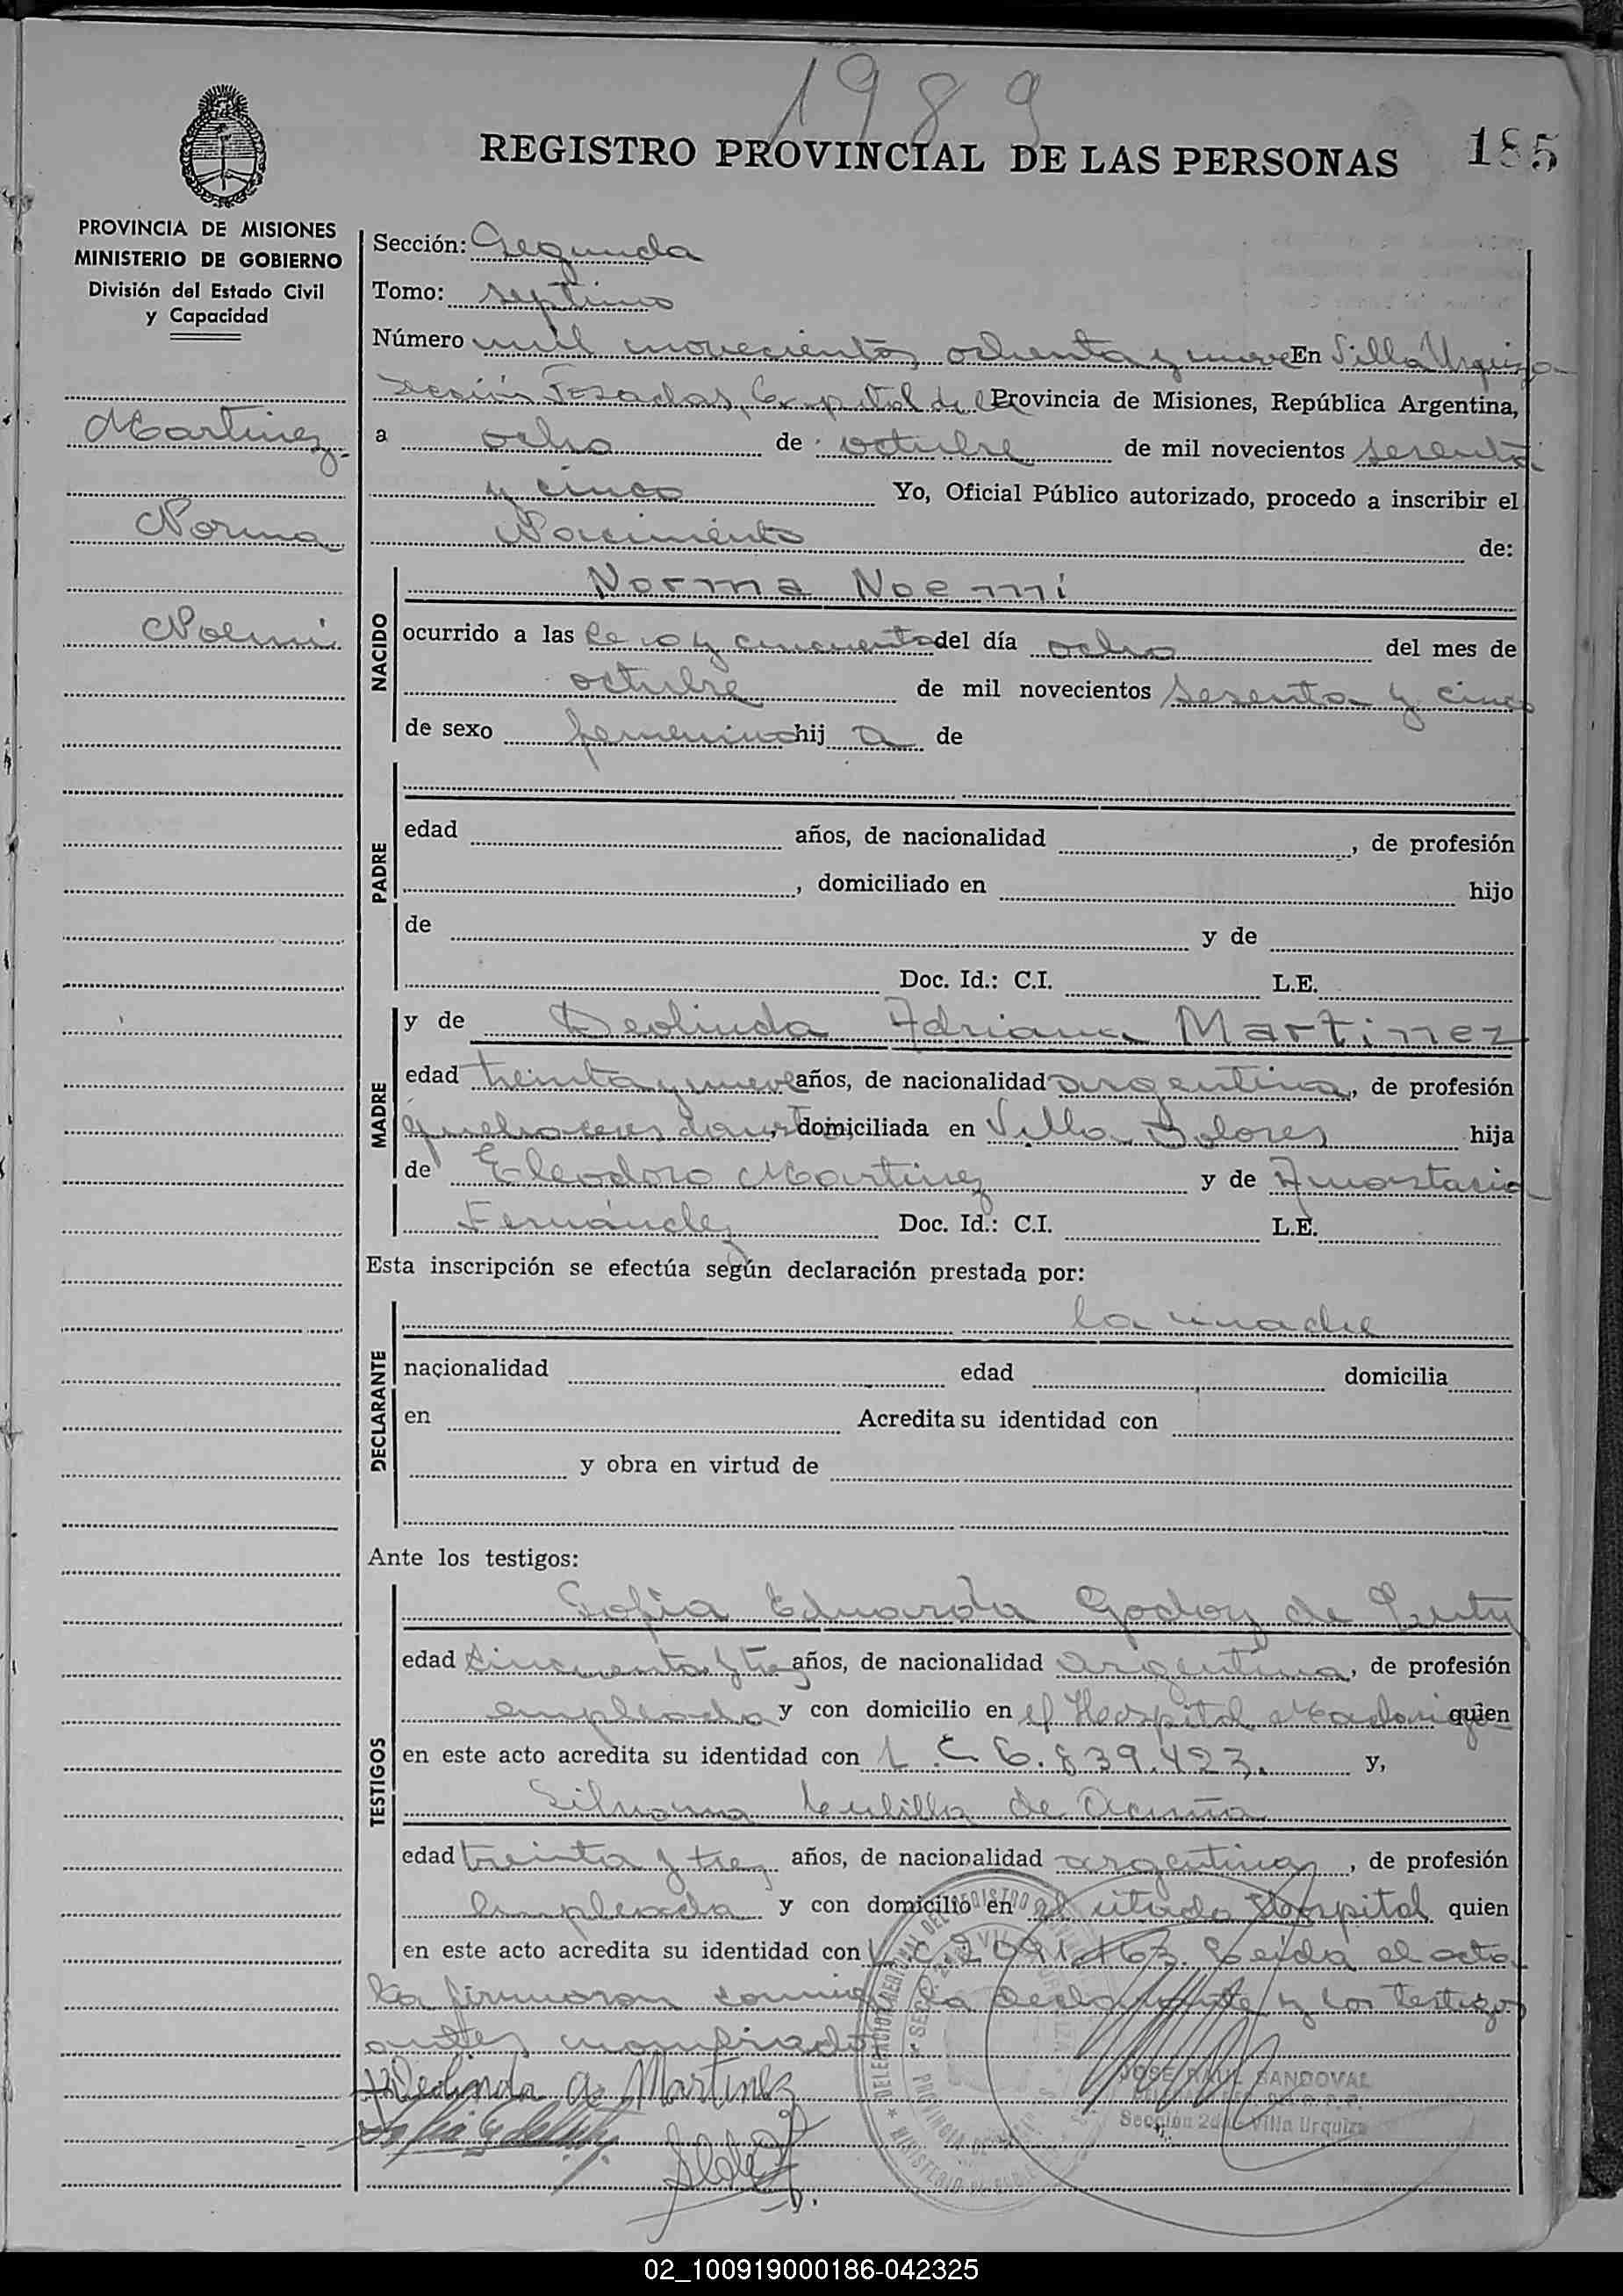 1989
REGISTRO PROVINCIAL DE LAS PERSONAS
185
PROVINCIA DE MISIONES
MINISTERIO DE GOBIERNO
División del Estado Civil
y Capacidad
Martinez
Norma
Noemi
Sección: Segunda
Tomo: septimo
Número mil novecientos ochenta y nueve En Villa Urquiza
sección Posadas, Capital de la Provincia de Misiones, República Argentina,
a ocho de octubre de mil novecientos sesenta
y cinco Yo, Oficial Público autorizado, procedo a inscribir el
Nacimiento de:
NACIDO
Norma Noemí
ocurrido a las cero y cincuenta del día ocho del mes de
octubre de mil novecientos sesenta y cinco
de sexo femenino hij a de
PADRE
edad años, de nacionalidad , de profesión
, domiciliado en hijo
de y de
Doc. Id.: C.I. L.E.
MADRE
y de Deolinda Adriana Martinez
edad treinta y nueve años, de nacionalidad argentina, de profesión
quehaceres domiciliada en Villa Dolores hija
de Eleodoro Martinez y de Anastacia
Fernández Doc. Id.: C.I. L.E.
Esta inscripción se efectúa según declaración prestada por:
DECLARANTE
la madre
nacionalidad edad domicilia
en Acredita su identidad con
y obra en virtud de
Ante los testigos:
TESTIGOS
Sofia Eduarda Godoy de
edad cincuenta y tres años, de nacionalidad argentina, de profesión
empleada y con domicilio en el Hospital Madariaga quien
en este acto acredita su identidad con L C 6.839.423. y,
de Acuña
edad treinta y tres años, de nacionalidad argentina, de profesión
empleada y con domicilio en el citado Hospital quien
en este acto acredita su identidad con L.C. 2.091.163. Leida el acta
la firmaron conmigo la declarante y los testigos
antes nombrados
Deolinda A. Martinez
JOSE RAUL SANDOVAL
Sección 2da. Villa Urquiza
02_100919000186-042325